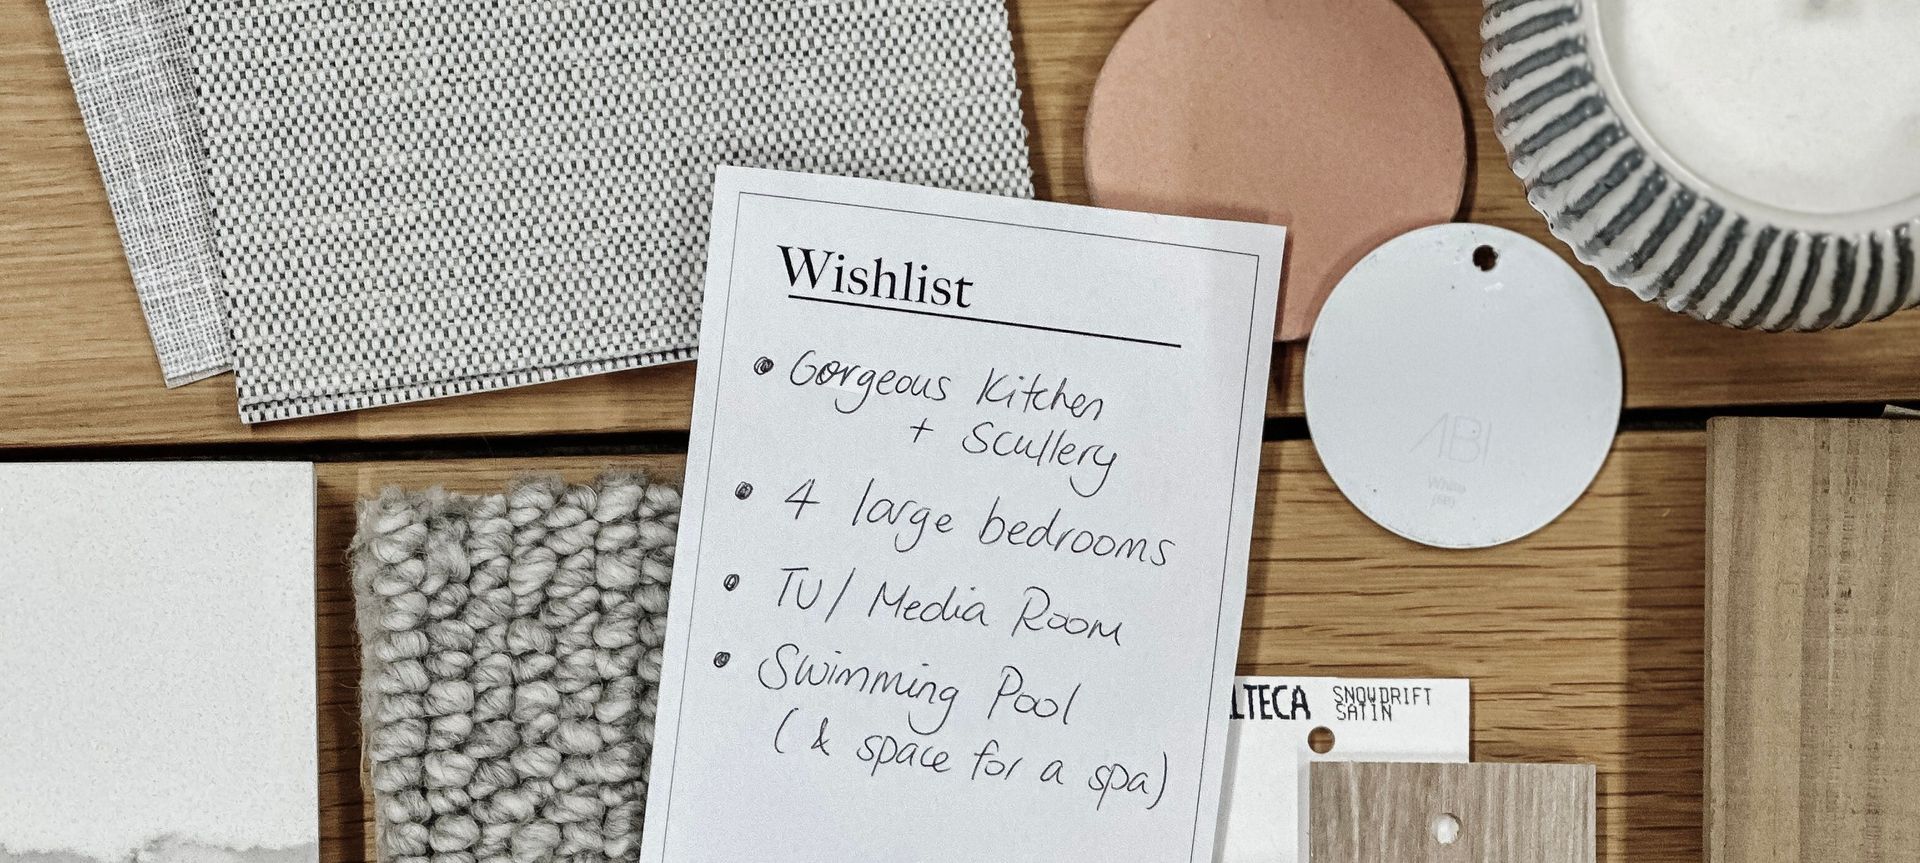 Wishlist
Gorgeous Kitchen
+ Scullery
4 large bedrooms
TV/ Media Room
Swimming Pool
(& space for a spa)
ABI
White
LTECA
SNOWDRIFT
SATIN